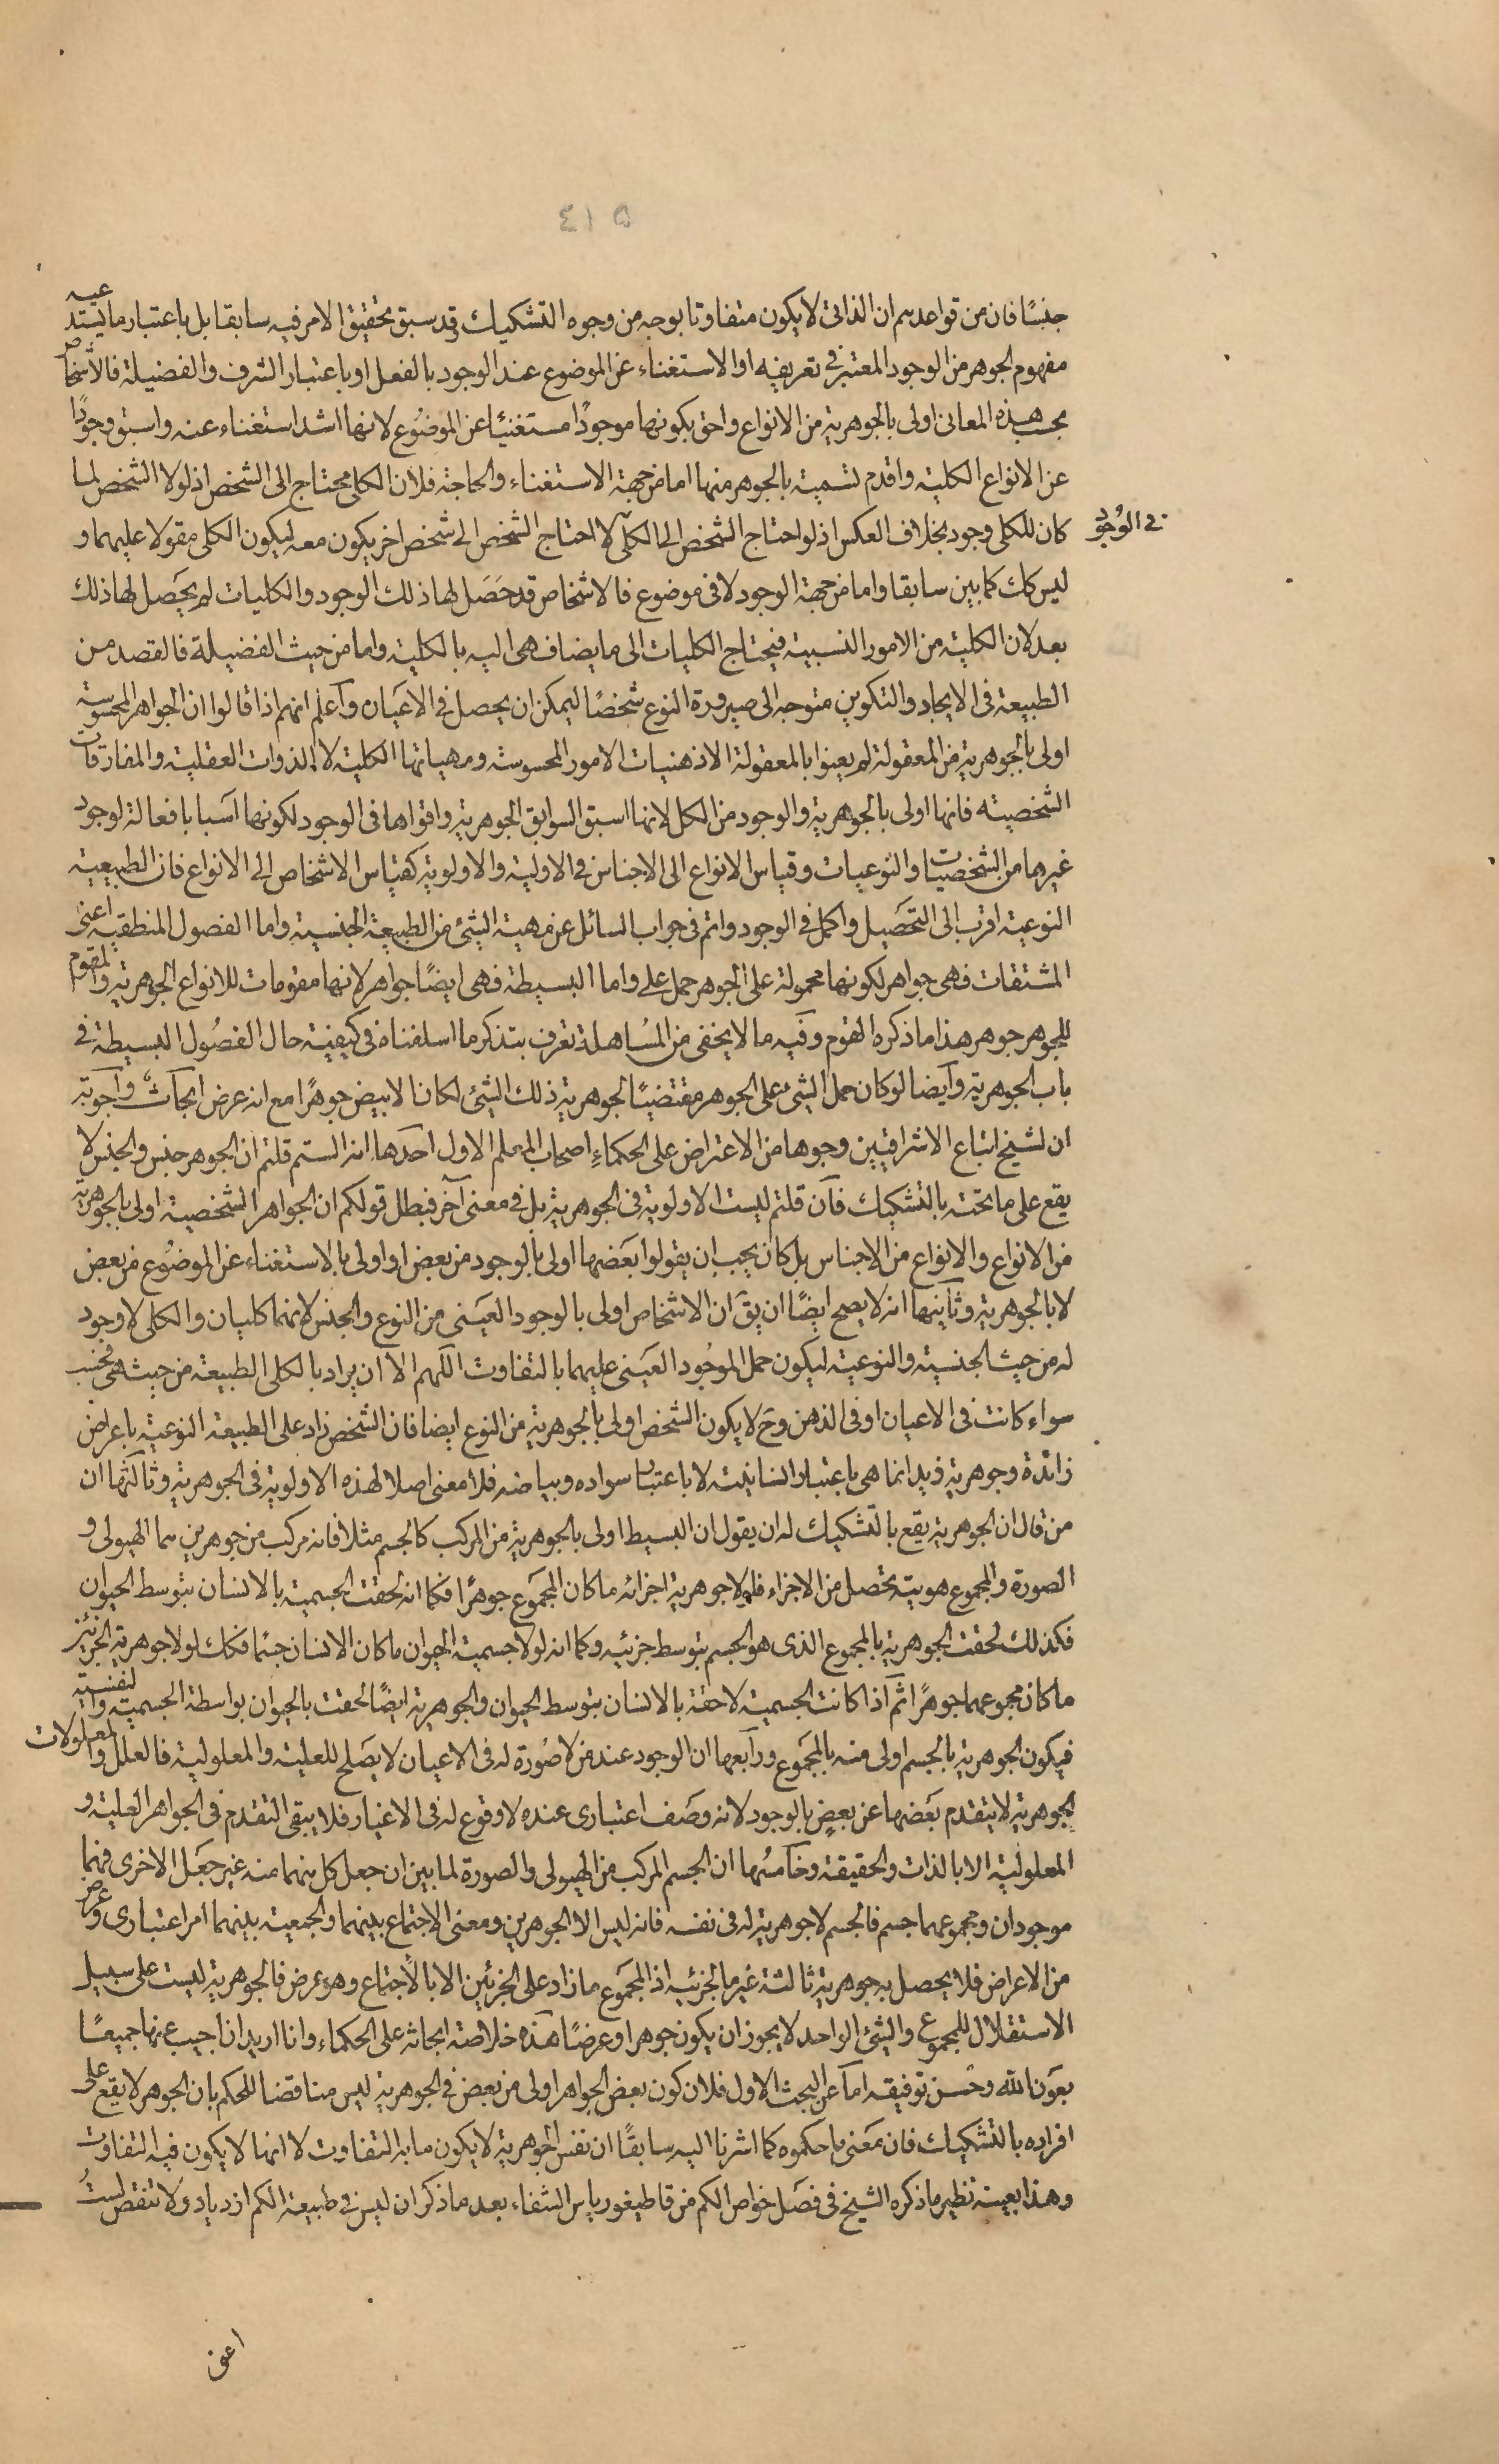 ٤١٥
جنسًا فان من قواعدهم ان الذاتى لا يكون متفاوتا بوجه من وجوه التشكيك وقد سبق تحقيق الامر فيه سابقا بل باعتبار ما يستدعيه
مفهوم الجوهر من الوجود المعتبر فى تعريفه او الاستغناء عن الموضوع عند الوجود بالفعل او باعتبار الشرف والفضيلة فالاشخاص
بحسب هذه المعانى اولى بالجوهرية من الانواع واحق بكونها موجودًا مستغنيًا عن الموضوع لانها اشد استغناء عنه واسبق وجودًا
عن الانواع الكلية واقدم تسمية بالجوهر منها اما من جهة الاستغناء والحاجة فلان الكلى محتاج الى الشخص اذ لولا الشخص لما
كان للكلى وجود بخلاف العكس اذ لو احتاج الشخص الى الكلى لاحتاج الشخص الى شخص اخر يكون معه ليكون الكلى مقولا عليهما و
فى الوجود
ليس كك كما بين سابقا واما من جهة الوجود لا فى موضوع فالاشخاص قد حصَل لها ذلك الوجود والكليات لم يحصل لها ذلك
بعد لان الكلية من الامور النسبية فيحتاج الكليات الى ما يضاف هى اليه بالكلية واما من حيث الفضيلة فالقصد من
الطبيعة فى الايجاد والتكوين متوجه الى صيرورة النوع شخصًا ليمكن ان يحصل فى الاعيان واعلم انهم اذا قالوا ان الجواهر المحسوسة
اولى بالجوهرية من المعقولة لم يعنوا بالمعقولة الا ذهنيات الامور المحسوسة ومهياتها الكلية لا الذوات العقلية والمفارقات
الشخصية فانها اولى بالجوهرية والوجود من الكل لانها اسبق السوابق الجوهرية واقواها فى الوجود لكونها اسبابا فعالة لوجود
غيرها من الشخصيات والنوعيات وقياس الانواع الى الاجناس فى الاولية والاولوية كقياس الاشخاص الى الانواع فان الطبيعة
النوعية اقرب الى التحصيل واكمل فى الوجود واتم فى جواب السائل عن مهية الشئ من الطبيعة الجنسية واما الفصول المنطقية اعنى
المشتقات فهى جواهر لكونها محمولة على الجوهر حمل على واما البسيطة فهى ايضًا جواهر لانها مقومات للانواع الجوهرية والمقوم
للجوهر جوهر هذا ما ذكره القوم وفيه ما لا يخفى من المسُاهلة تعرف بتذكر ما اسلفناه فى كيفية حال الفصُول البسيطة فى
باب الجوهرية وايضا لو كان حمل الشئ على الجوهر مقتضيًا لجوهرية ذلك الشئ لكان الابيض جوهرًا مع انه عرض ابحاث واجوبة
ان لشيخ اتباع الاشراقيين وجوها من الاعتراض على الحكماءِ اصحاب المعلم الاول احدها انه الستم قلتم ان الجوهر جنس والجنس لا
يقع على ما تحته بالتشكيك فان قلتم ليست الاولوية فى الجوهرية بل فى معنى آخر فبطل قولكم ان الجواهر الشخصية اولى بالجوهرية
من الانواع والانواع من الاجناس بل كان يجب ان يقولوا بعَضها اولى بالوجود من بعض او اولى بالاستغناء عن الموضوُع من بعض
لا بالجوهرية وثانيها انه لا يصح ايضًا ان يقَ ان الاشخاص اولى بالوجود العينى من النوع والجنس لانهما كليان والكلى لا وجود
له من حيث الجنسية والنوعية ليكون حمل الموجُود العينى عليهما بالتفاوت اللهم الا ان يراد بالكلى الطبيعة من حيث هى فحسب
سواء كانت فى الاعيان او فى الذهن وح لا يكون الشخص اولى بالجوهرية من النوع ايضا فان الشخص زاد على الطبيعة النوعية باعراض
زائدة وجوهرية زيد انما هى باعتبار انسانيته لا باعتبار سواده وبياضه فلا معنى اصلا لهذه الاولوية فى الجوهرية وثالثها ان
من قال ان الجوهرية يقع بالتشكيك له ان يقول ان البسيط اولى بالجوهرية من المركب كالجسم مثلا فانه مركب من جوهرين هما الهيولى و
الصورة والمجموع هوية تحصل من الاجزاء فلولا جوهرية اجزائه ما كان المجموَع جوهرًا فكما انه لحقت الجسمية بالانسان بتوسط الحيوان
فكذلك لحقت الجوهرية بالمجموع الذى هو الجسم بتوسط جزئيه وكما انه لولا جسمية الحيوان ما كان الانسان جسمًا فكك لولا جوهرية الجزئين
ما كان مجموعهما جوهرًا ثم اذا كانت الجسمية لاحقة بالانسان بتوسط الحيوان والجوهرية ايضًا لحقت بالحيوان بواسطة الجسمية والنفسية
فيكون الجوهرية بالجسم اولى منه بالمجموَع ورابعها ان الوجود عند من لا صُورة له فى الاعيان لا يصَلح للعلية والمعلولية فالعلل والمعلولات
الجوهرية لا يتقدم بعَضها عن بعضٍ بالوجود لانه وصَف اعتبارى عنده لا وقوع له فى الاعيان فلا يبقى التقدم فى الجواهر العلية و
المعلولية الا بالذات والحقيقة وخامسُها ان الجسم المركب من الهيولى والصورة لما بين ان جعل كل منهما منه غير جعَل الاخرى فهما
موجودان ومجموعهما جسم فالجسم لا جوهرية له فى نفسه فانه ليس الا الجوهرين ومعنى الاجتماع بينهما والجمعية بينهما امر اعتبارى وعرض
من الاعراض فلا يحصل به جوهرية ثالثة غير ما لجزئيه اذ المجموَع ما زاد على الجزئين الا بالاجتماع وهو عرض فالجوهرية ليست على سبيل
الاستقلال للمجموع والشئ الواحد لا يجوز ان يكون جوهرا وعرضًا هذه خلاصة ابحاثه على الحكماء وانا اريد ان اجيب عنها جميعًا
بعَون الله وحُسن توفيقه اما عن البحث الاول فلان كون بعض الجواهر اولى من بعض فى الجوهرية ليس مناقضا للحكم بان الجوهر لا يقع على
افراده بالتشكيك فان مَعنى ما حكموه كما اشرنا اليه سابقًا ان نفس الجوهرية لا يكون ما به التفاوت لا انها لا يكون فيه التفاوت
وهذا بعينه نظير ما ذكره الشيخ فى فصَل خواص الكم من قاطيغورياس الشفاء بعد ما ذكر ان ليس فى طبيعة الكم ازدياد ولا تنقص لستُ
اعنى